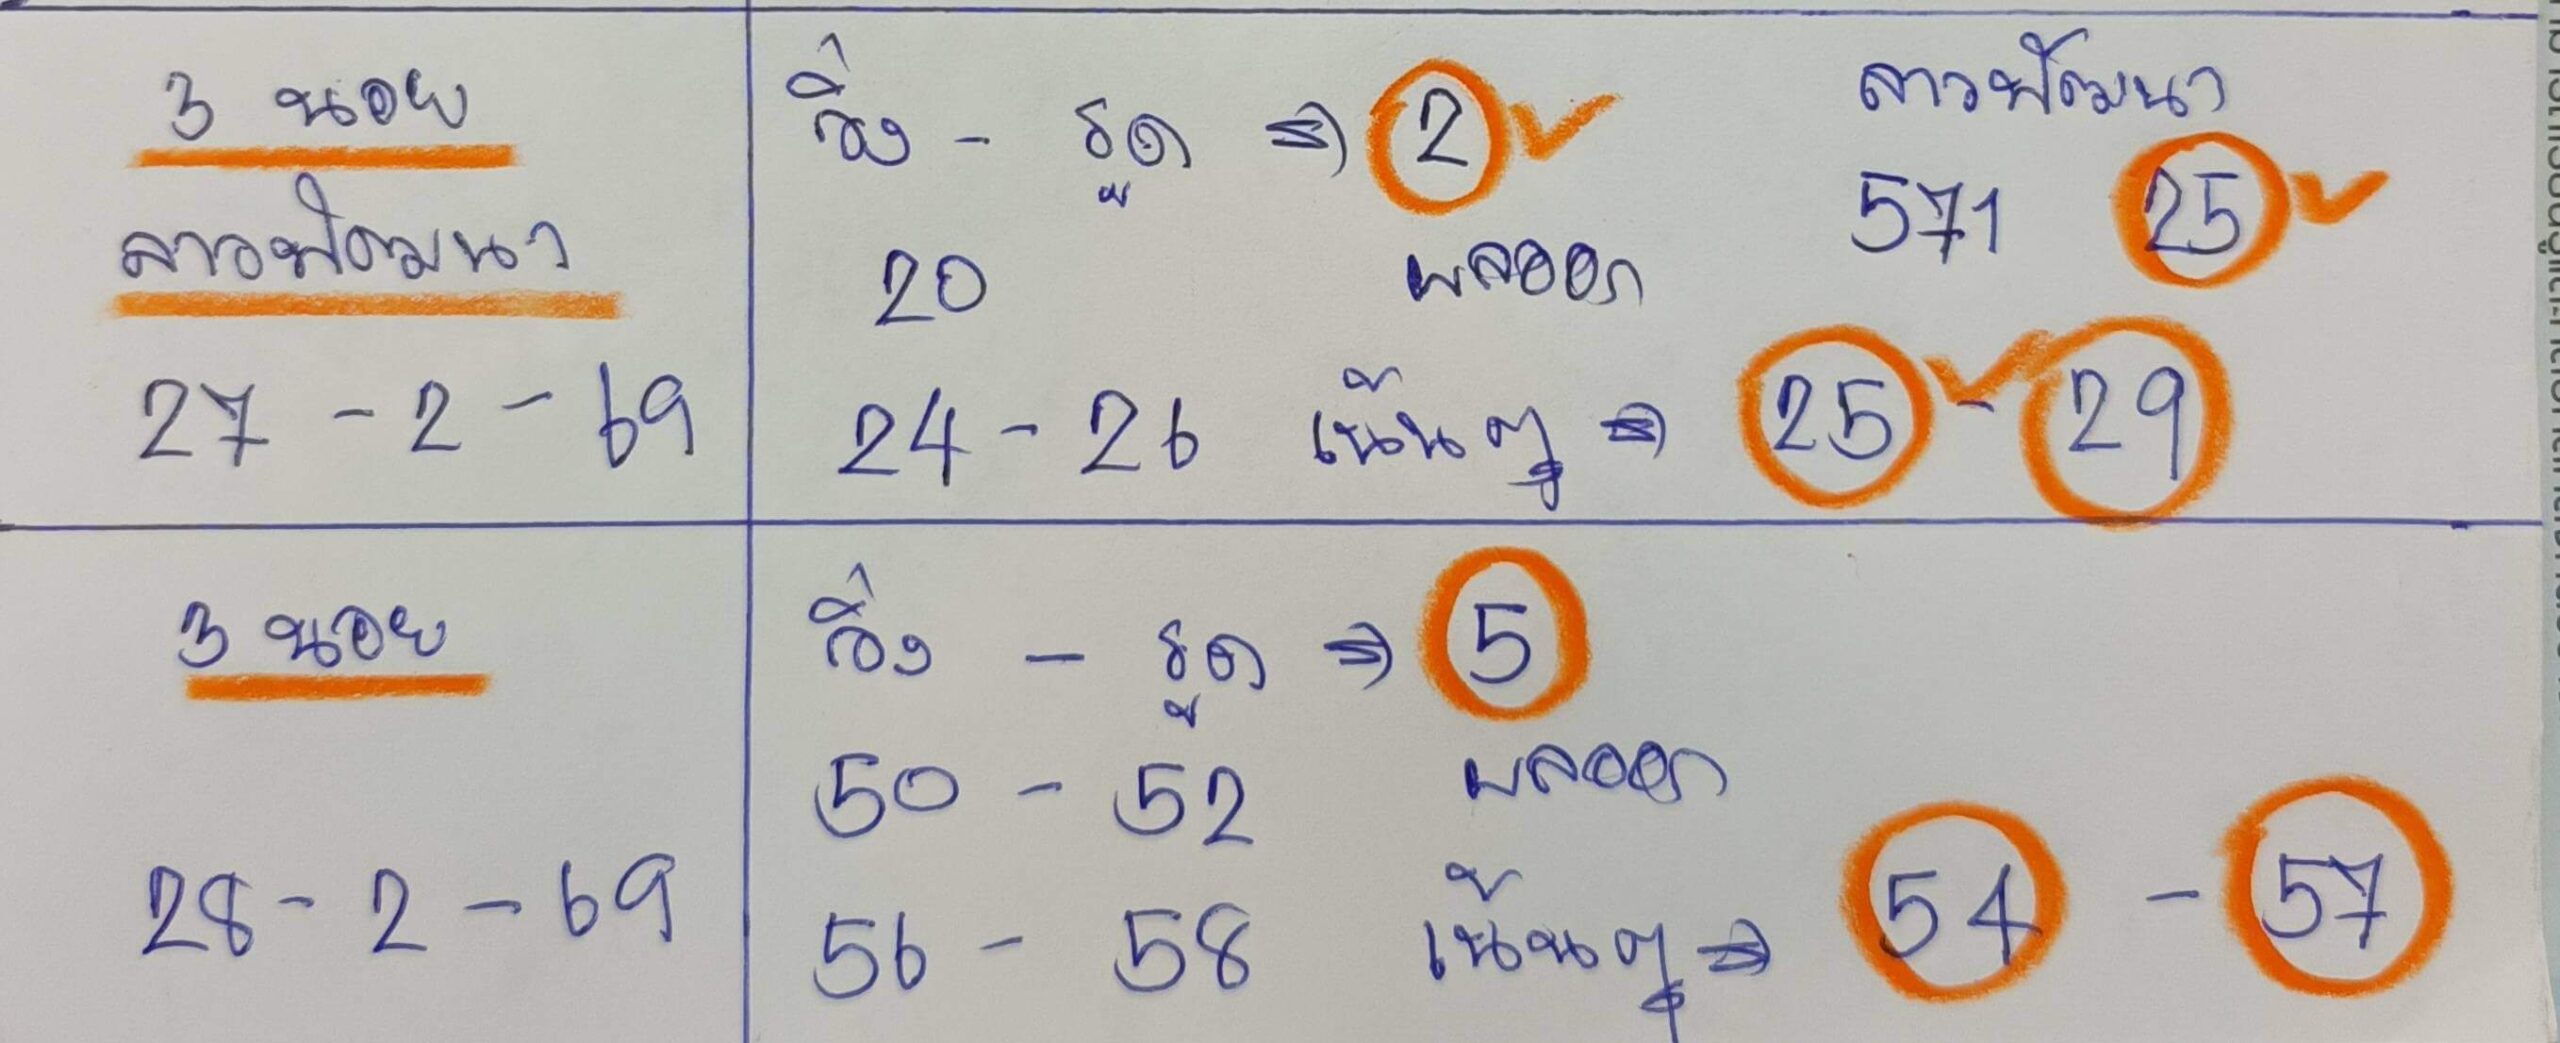 3 นอย
ลาวพัฒนา
27 - 2 - 69
วิ่ง - รูด ⇒ 2 ✓
20 ผลออก
24 - 26 เน้นๆ ⇒ 25 ✓ - 29
ลาวพัฒนา
571 25 ✓
3 นอย
28 - 2 - 69
วิ่ง - รูด ⇒ 5
50 - 52 ผลออก
56 - 58 เน้นๆ ⇒ 54 - 57